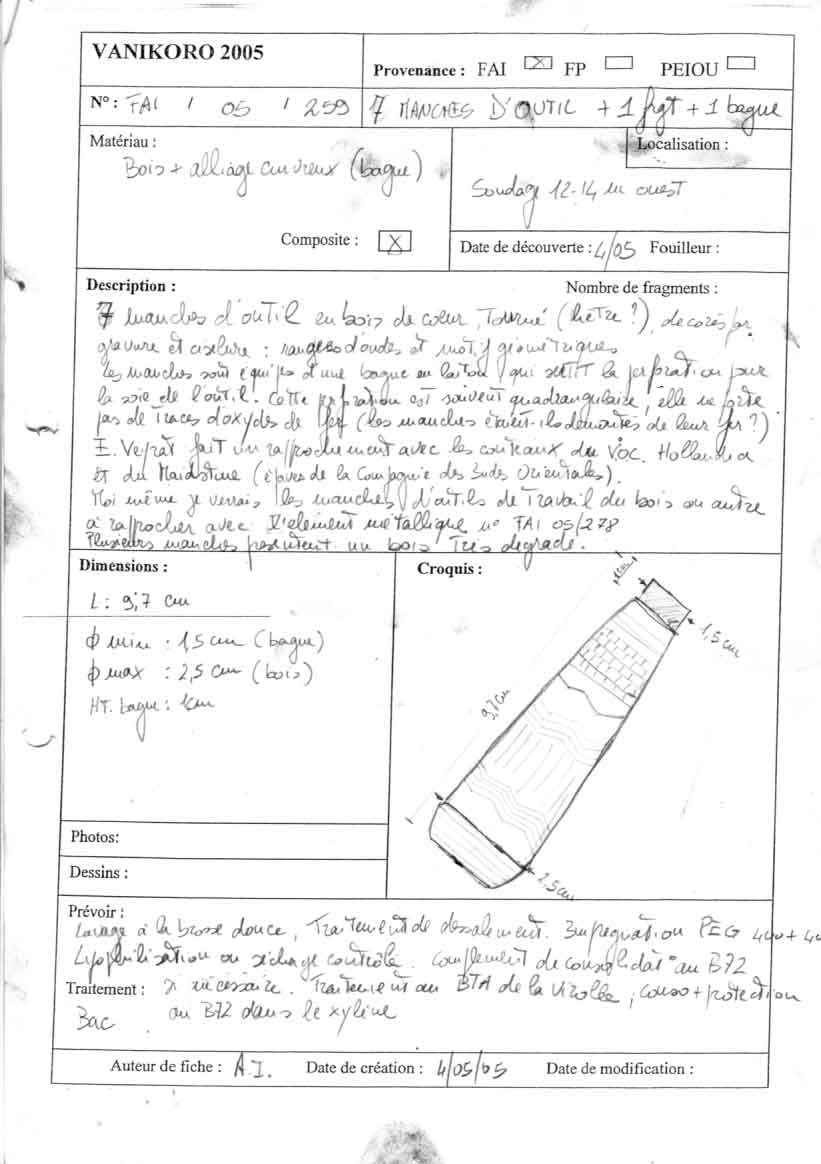 VANIKORO 2005
Provenance : FAI ☒ FP ☐ PEIOU ☐
N° : FAI / 05 / 259
7 MANCHES D'OUTIL + 1 frgt + 1 bague
Matériau :
Bois + alliage cuivreux (bague)
Composite : ☒
Localisation :
Sondage 12-14 m ouest
Date de découverte : 4/05 Fouilleur :
Description :
Nombre de fragments :
7 manches d'outil en bois de coeur, Tourné (hêtre ?), decorés par
gravure et ciselure : rangées d'ondes et motif géométriques
Les manches sont équipés d'une bague en laiton, qui sertit la perforation pour
la soie de l'outil. Cette perforation est souvent quadrangulaire, elle ne porte
pas de Traces d'oxydes de fer (les manches étaient-ils démontés de leur fer ?)
E. Veyrat fait un rapprochement avec les couteaux du VOC. Hollandia
et du Maidstone (épaves de la Compagnie des Indes Orientales).
Moi même je verrais les manches d'outils de Travail du bois ou autre
à rapprocher avec l'element métallique n° FAI 05/278
Plusieurs manches présentent un bois Très dégradé.
Dimensions :
L : 9,7 cm
ϕ mini : 1,5 cm (bague)
ϕ max : 2,5 cm (bois)
HT. bague : 1cm
Croquis :
1cm
1,5 cm
9,7cm
2,5cm
Photos:
Dessins :
Prévoir :
Lavage à la brosse douce, Traitement de dessalement. Impregnation PEG 400 + 40
Lyophilisation ou séchage contrôlé. Complement de consolidat° au B72
Traitement : si nécessaire. Traitement au BTA de la virolle, conso + protection
Bac
au B72 dans le xylène
Auteur de fiche : A.I. Date de création : 4/05/05 Date de modification :